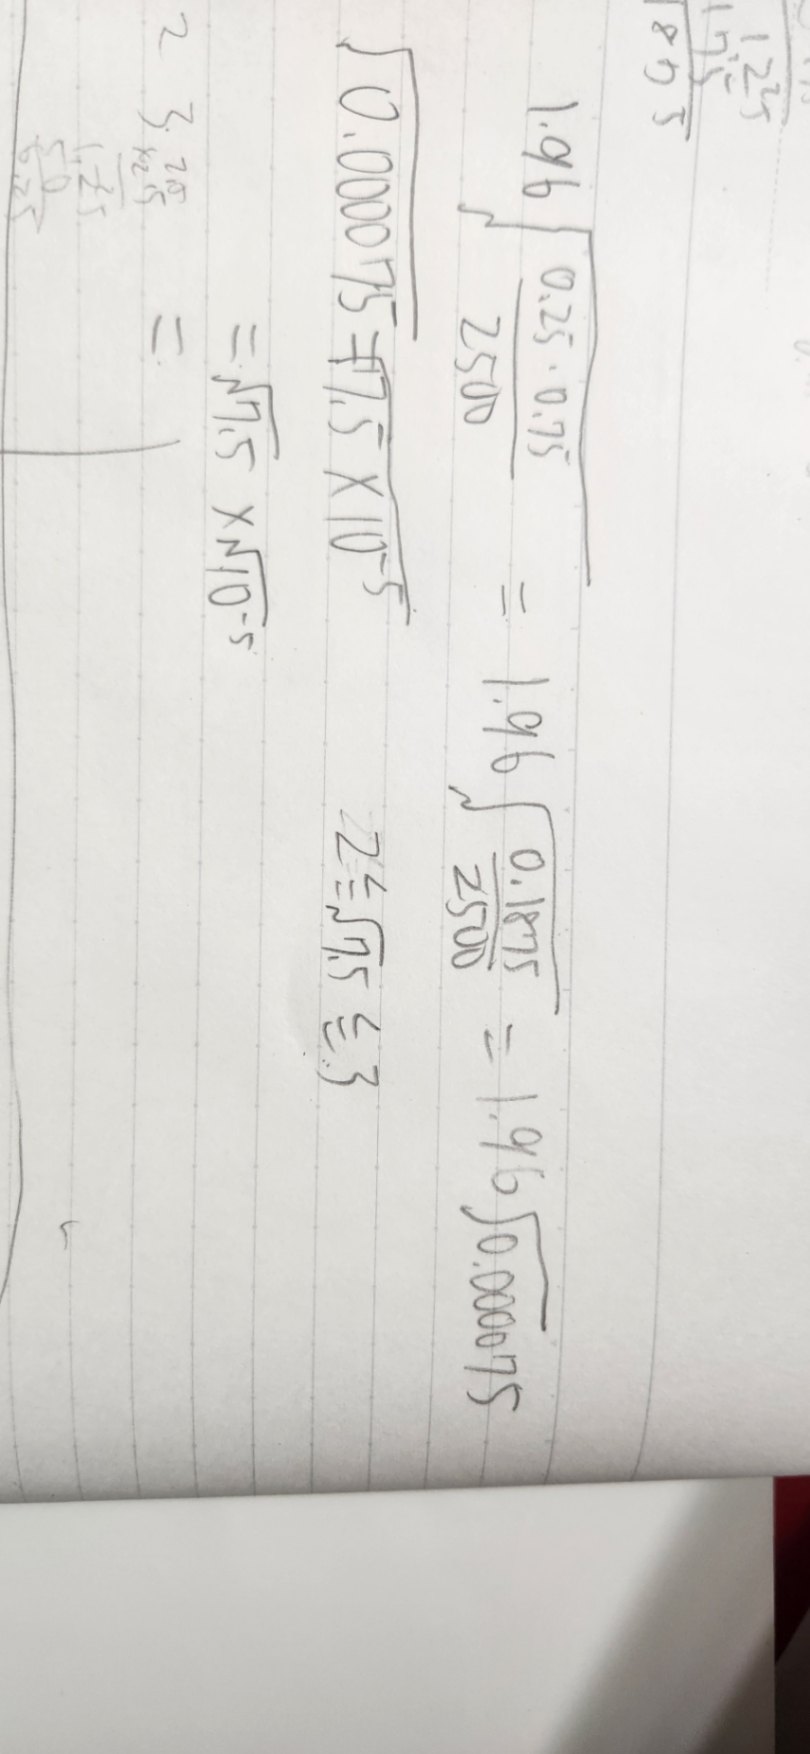 125
175
1875
1.96√(0.25 · 0.75 / 2500) = 1.96√(0.1875 / 2500) = 1.96√0.000075
√0.000075 = √7.5 × 10⁻⁵ 2 ≤ √7.5 ≤ 3
= √7.5 × √10⁻⁵
2 3. =
2.5
×2.5
1.25
50
6.25